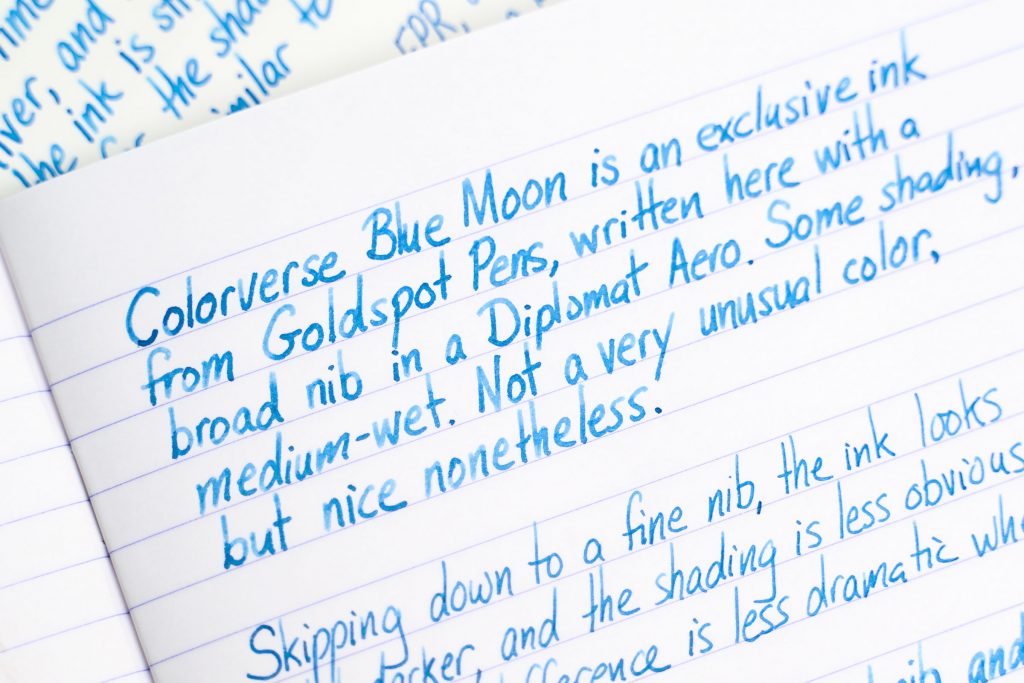 ver, and
the ink is
the shad
similar to
EPR,
Colorverse Blue Moon is an exclusive ink
from Goldspot Pens, written here with a
broad nib in a Diplomat Aero. Some shading,
medium-wet. Not a very unusual color,
but nice nonetheless.
Skipping down to a fine nib, the ink looks
darker, and the shading is less obvious
is less dramatic
nib and